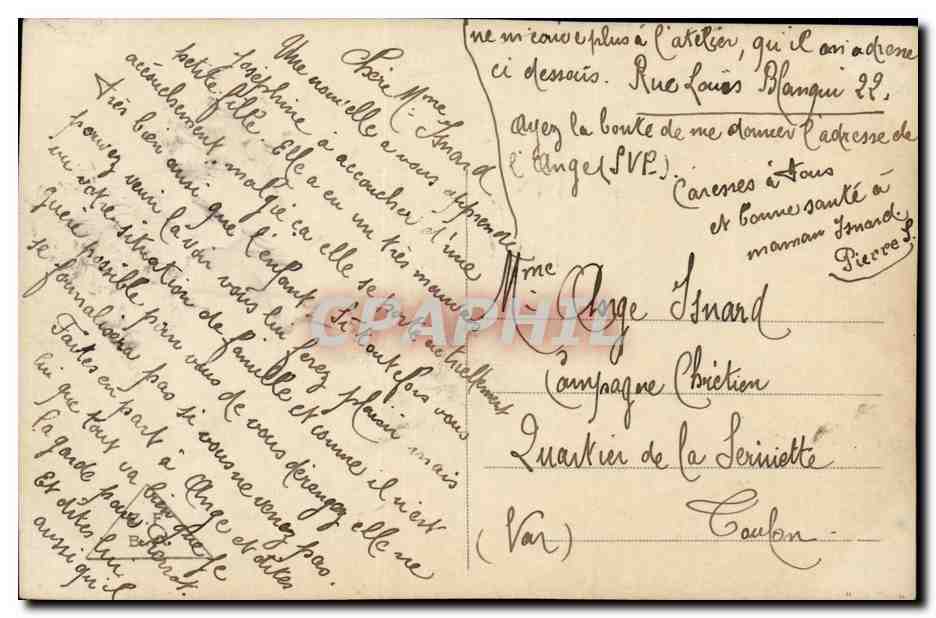 Chère Mme Isnard
Une nouvelle à vous apprendre
Josephine à accoucher d'une
petite fille. Elle a eu un très mauvais
accouchement malgré ça elle se porte actuellement
très bien ainsi que l'enfant. Si toutefois vous
pouvez venir la voir vous lui ferez plaisir mais
vu votre situation de famille et comme il n'est
guère possible pour vous de vous déranger elle ne
se formalisera pas si vous ne venez pas.
Faites en part à Ange et dites
lui que tout va bien que je
la garde pour Pierrot.
Et dites lui
aussi qu'il
ne m'écrive plus à l'atelier, qu'il
adresse
ci dessous. Rue Louis Blanqui 22.
Ayez la bonté de me donner l'adresse de
l'Ange (SVP).
Caresses à tous
et bonne santé à
maman Isnard.
Pierre S.
Mme Ange Isnard
Campagne Chrétien
Quartier de la Serviette
(Var) Toulon
CPAPHIL